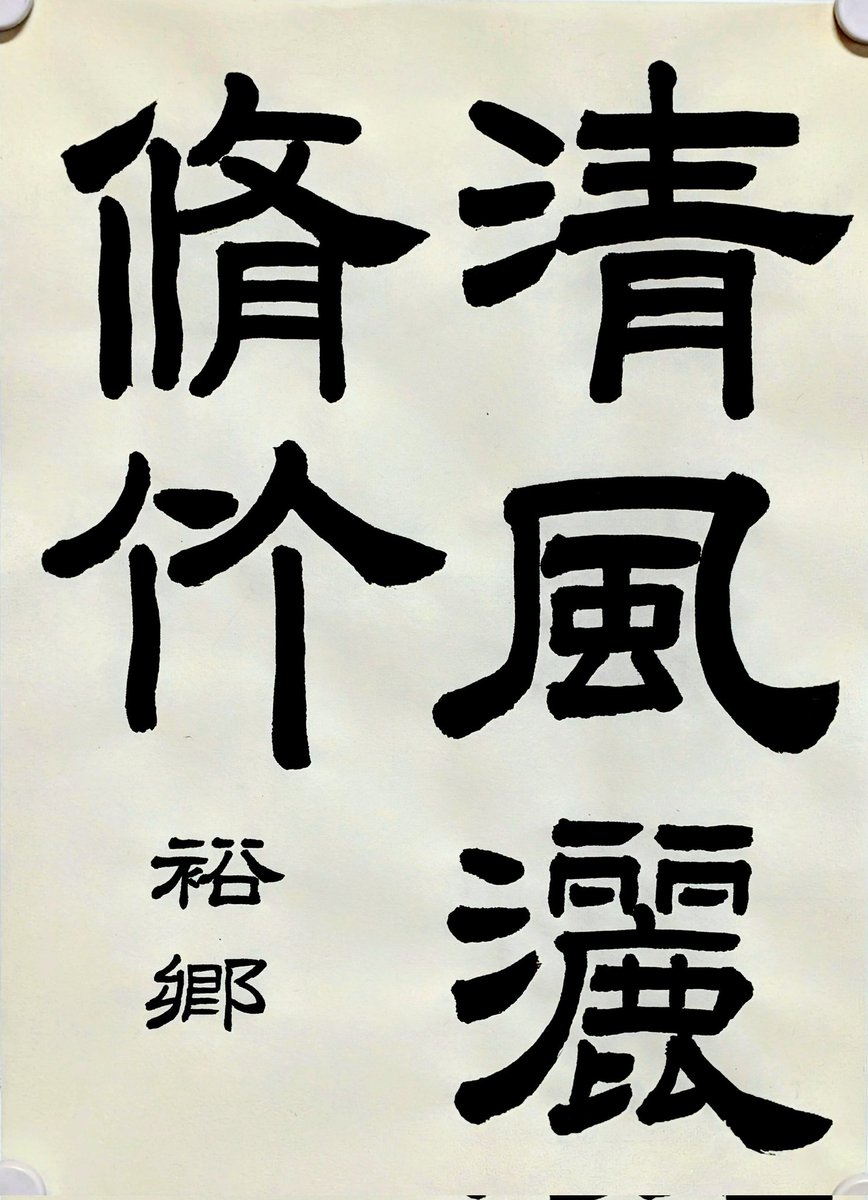 清風灑
脩竹
裕郷